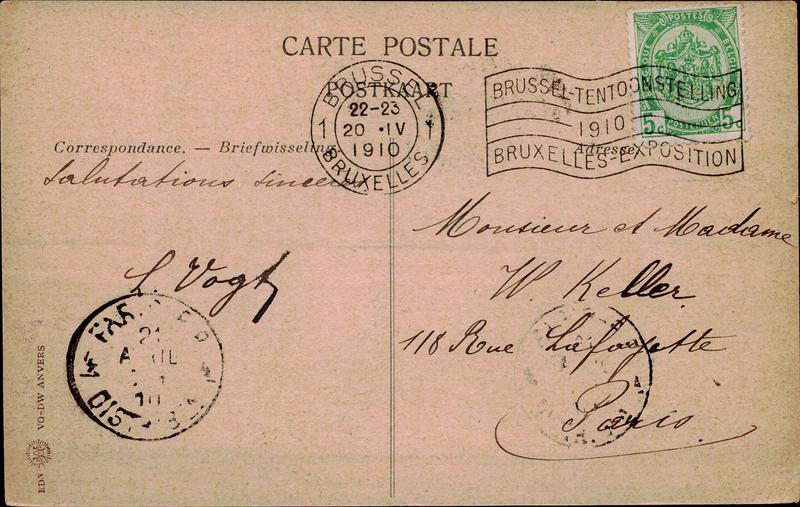 CARTE POSTALE
POSTKAART
BRUSSEL
22-23
1 20 • IV 1
1910
BRUXELLES
POSTES
5c 5c
POSTERIJEN
BRUSSEL-TENTOONSTELLING
1910
BRUXELLES-EXPOSITION
Correspondance. — Briefwisseling.
Adresse
Salutations sincères
L Vogt
21
AVRIL
10
Monsieur et Madame
W. Keller
118 Rue Lafayette
Paris.
EDN VO-DW ANVERS